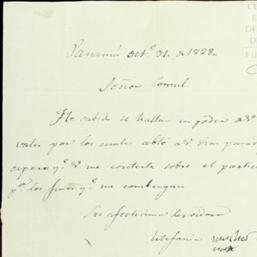 Panamá octe. 31. de 1828.
Señor Consul
He sabido se hallan en poder de
valor por los cuales abló a V. dias
espero qe. V. me conteste sobre el
pa. los fines qe. me combengan
Su afectisima servidora
Estefania